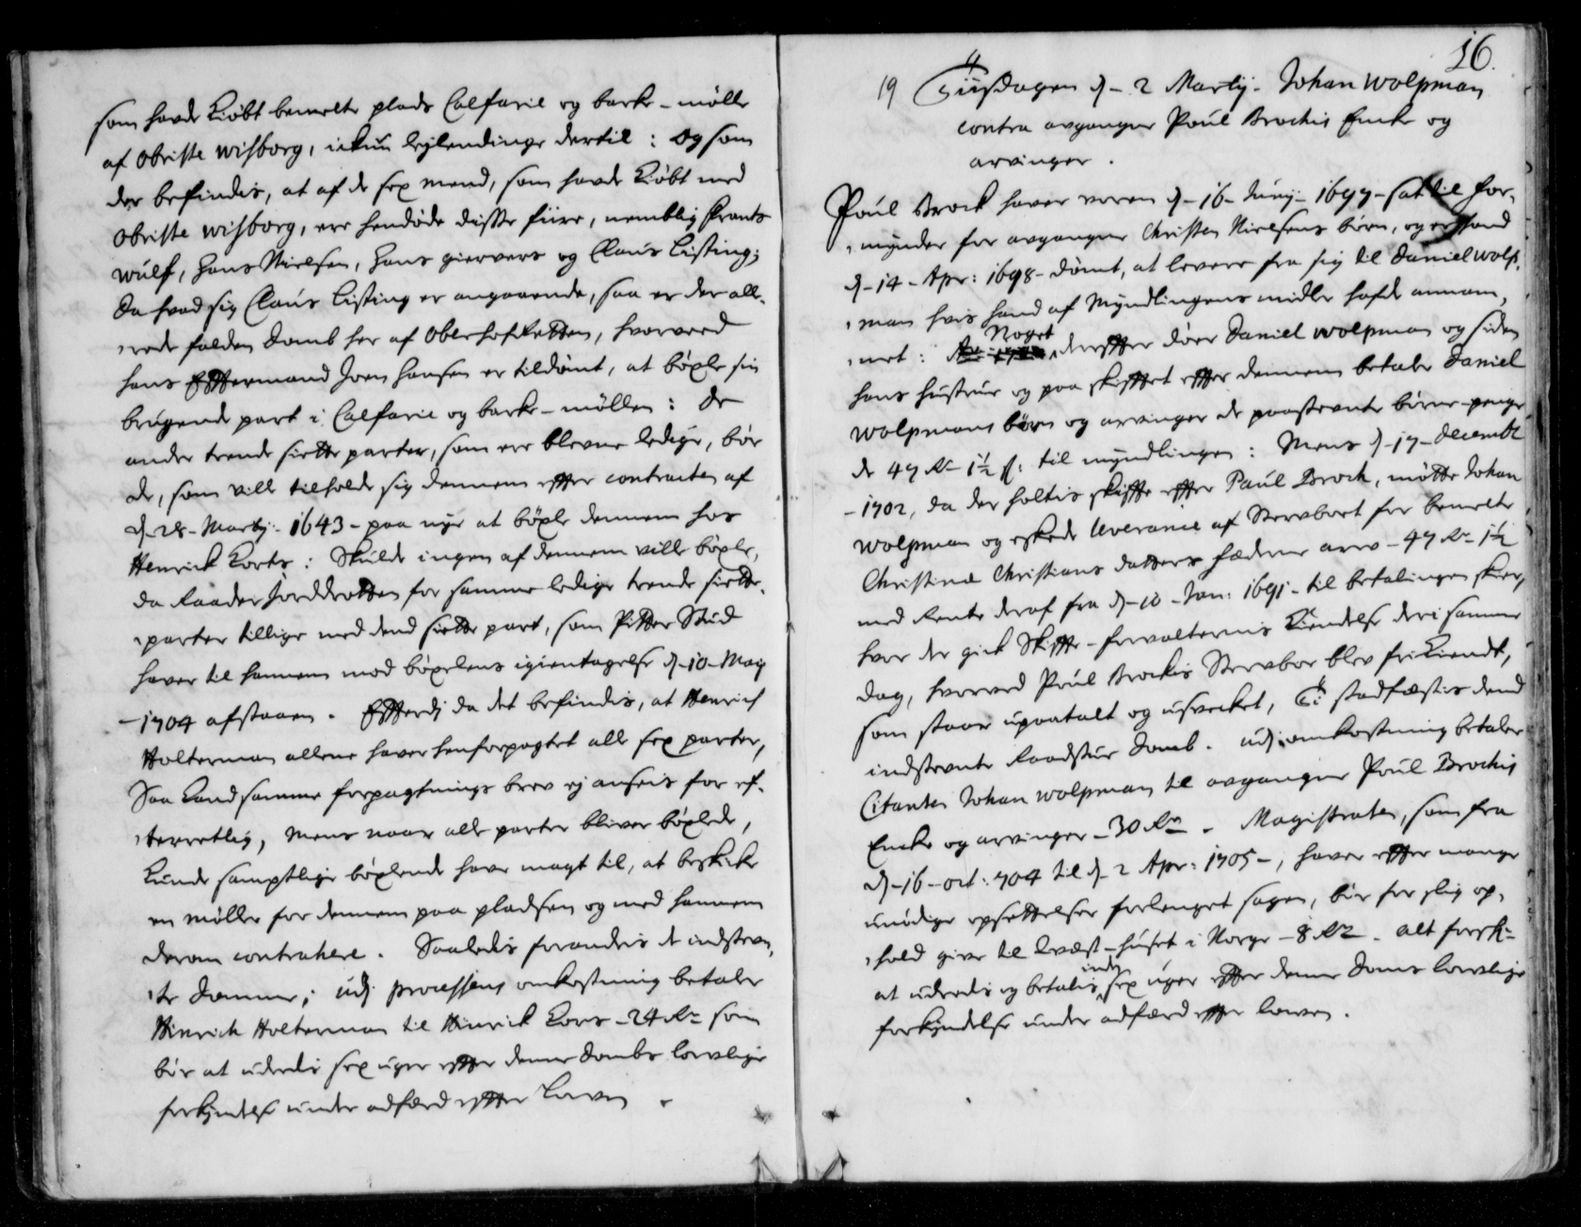 som hafde kiøbt bemelte plads Calfarie og barke-mølle
af Obriste Wisborg, iekun lejlendinge dertil: Og som
der befindes, at af de sex mænd, som hafde kiøbt med
Obriste Wisborg, ere hendøde disse fiire, nemblig Frants
Wulf, Hans Nielsen, Hans giervers og Claus Listing;
da hvad sig Claus Listing er angaaende, saa er der alle-
rede falden domb her af Oberhofretten, hvorved
hans Efftermand Joen Hansen er tildømt, at bøxle sin
brugende part i Calfarie og barke-møllen: De
andre trende siette parter, som ere blevne ledige, bør
de, som ville tilholde sig dennem effter contracten af
d. 28. Martij: 1643 paa nye at bøxle dennem hos
Henrick Korts: Skulde ingen af dennem ville bøxle,
da raader Jorddrotten for samme ledige trende siette
parter tillige med dend siette part, som Pitter Stud
haver til hannem mod bøxelens igientagelse d. 10 Maij
1704 afstaaen. Efftterdj da det befindis, at Henrich
Holterman allene haver henforpagtet alle sex parter,
Saa kand samme forpagtnings brev ej ansees for ef-
terretlig, Mens naar alle parter bliver bøxlede,
kunde samptlige bøxlende have magt til, at beskicke
en møller for dennem paa pladsen og med hannem
derom contrahere. Saaledis forandris de indstevn-
te domme; udj processens omkostning betaler
Hinrich Holterman til Hinrick Kors 24 Rdr som
bør at uderedis sex uger effter denne dombs lovlige
forkyndelse under adfærd effter Loven.
16.
19 Tiisdagen d. 2 Martij. Johan Wolpman
contra afgangne Poul Brochis Encke og
arvinger.
Poul Brock haver været d. 16 Junij 1697 sat til for-
mynder for afgangne Christen Nielsens børn, og er hand
d. 14 Apr: 1698 dømt, at levere fra sig til Daniel Wolp-
man hvis hand af Myndlingens midler hafde annam-
met: Noget dereffter døer Daniel Wolpman og siden
hans hustrue og paa skifftet effter dennem betaler Daniel
Wolpmans børn og arvinger de paastevnte børne-penge
de 47 Rdr 1½ ß: til myndlingen: Mens d. 17 Decembr
1702, da der holtis skiffte effter Paul Brock, mødte Johan
Wolpman og eskede leverance af Stervboet for bemelte
Christine Christians datters fæderne arv 47 Rdr 1½
med Rente deraf fra d. 10 Jan: 1691 til betalingen skeer,
hvor der gick Skiffte-forvalternis kiendelse der i samme
dag, hvorved Poul Brockis Stervboe blev frikiendt,
som staar upaatalt og usvecket, Ti stadfæstis dend
indstevnte Raadstue domb. udj omkostning betaler
Citanten Johan Wolpman til afgangne Poul Brochis
Encke og arvinger 30 Rdr. Magistraten, som fra
d. 16 oct: 704 til d. 2 Apr: 1705, haver effter mange
unødige opsettelser forlenget sagen, bør for slig op-
hold give til Quæst-huset i Norge 8 Rdr. alt forsk:
at uderedis og betalis inden sex uger effter denne doms lovlige
forkyndelse under adfærd effter loven.